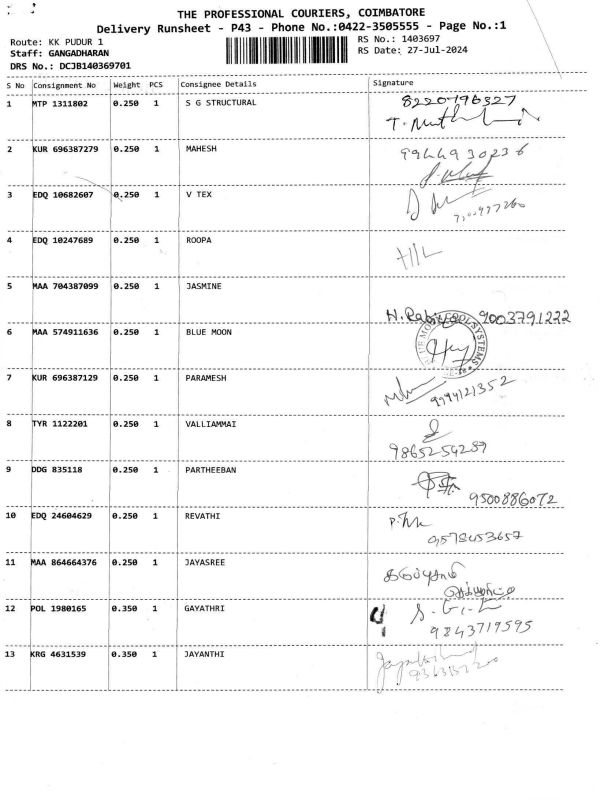 THE PROFESSIONAL COURIERS, COIMBATORE
Delivery Runsheet - P43 - Phone No.:0422-3505555 - Page No.:1
Route: KK PUDUR 1 RS No.: 1403697
Staff: GANGADHARAN RS Date: 27-Jul-2024
DRS No.: DCJB140369701
S No Consignment No Weight PCS Consignee Details Signature
1 MTP 1311802 0.250 1 S G STRUCTURAL
8220796327
2 KUR 696387279 0.250 1 MAHESH
3 EDQ 10682607 0.250 1 V TEX
4 EDQ 10247689 0.250 1 ROOPA
5 MAA 704387099 0.250 1 JASMINE
9003791222
6 MAA 574911636 0.250 1 BLUE MOON
7 KUR 696387129 0.250 1 PARAMESH
9994121352
8 TYR 1122201 0.250 1 VALLIAMMAI
9865254289
9 DDG 835118 0.250 1 PARTHEEBAN
9500886072
10 EDQ 24604629 0.250 1 REVATHI
9578453657
11 MAA 864664376 0.250 1 JAYASREE
12 POL 1980165 0.350 1 GAYATHRI
9843719595
13 KRG 4631539 0.350 1 JAYANTHI